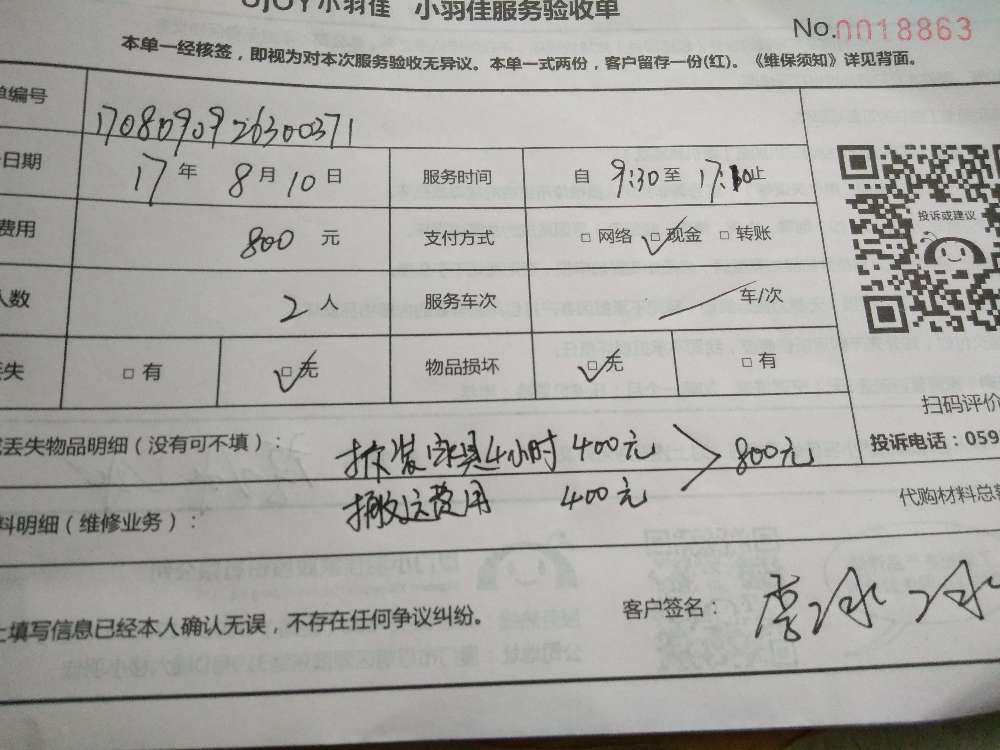 OJOY小羽佳 小羽佳服务验收单
No.0018863
本单一经核签，即视为对本次服务验收无异议。本单一式两份，客户留存一份(红)。《维保须知》详见背面。
单编号 1708090926300371
日期 17年 8月10日 服务时间 自 9:30至 17:30止
费用 800 元 支付方式 □网络 ☑现金 □转账
人数 2人 服务车次 车/次
丢失 □有 ☑无 物品损坏 ☑无 □有
投诉或建议
扫码评价
投诉电话：059
丢失物品明细（没有可不填）： 拆装家具4小时 400元 > 800元
料明细（维修业务）： 搬运费用 400元
代购材料总额
上填写信息已经本人确认无误，不存在任何争议纠纷。
客户签名：李冰冰